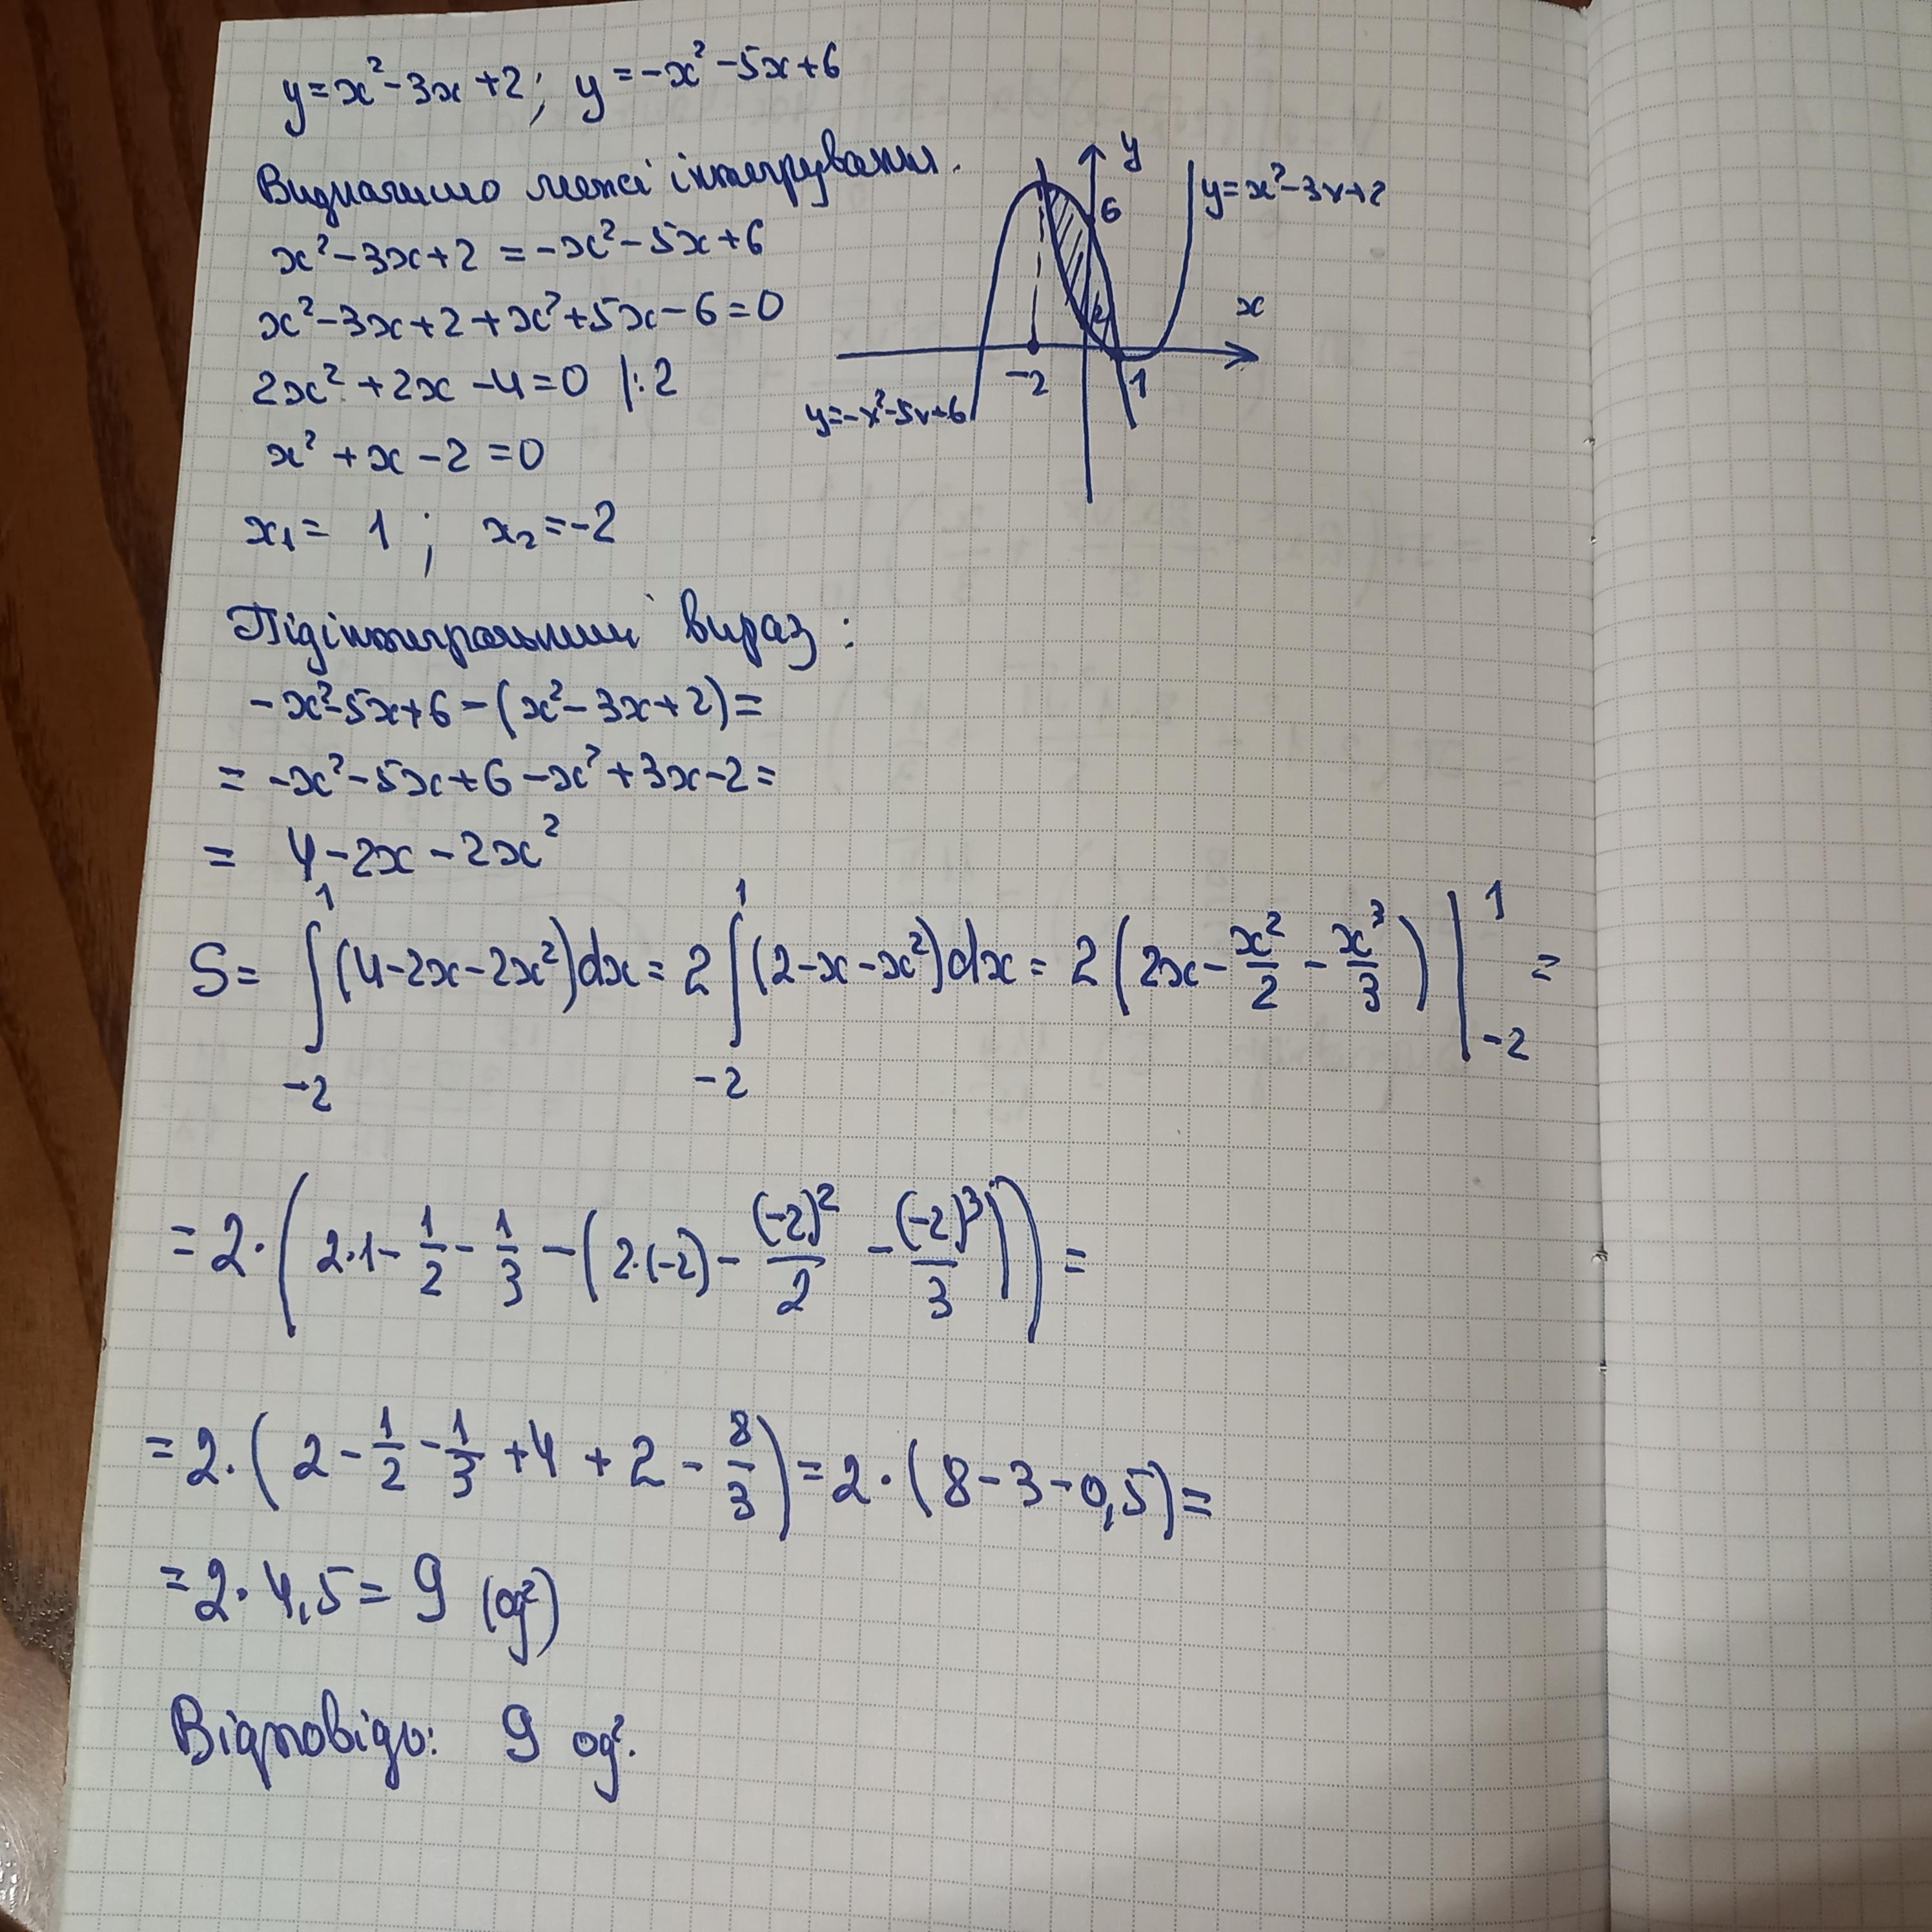 y=x²-3x+2; y=-x²-5x+6
Визначимо межі інтегрування.
x²-3x+2=-x²-5x+6
x²-3x+2+x²+5x-6=0
2x²+2x-4=0 |:2
x²+x-2=0
x₁=1; x₂=-2
y
6
y=x²-3x+2
2
x
-2
1
y=-x²-5x+6
Підінтегральний вираз:
-x²-5x+6-(x²-3x+2)=
=-x²-5x+6-x²+3x-2=
=4-2x-2x²
S=∫₋₂¹(4-2x-2x²)dx=2∫₋₂¹(2-x-x²)dx=2(2x-x²/2-x³/3)|₋₂¹=
=2·(2·1-1/2-1/3-(2·(-2)-(-2)²/2-(-2)³/3))=
=2·(2-1/2-1/3+4+2-8/3)=2·(8-3-0,5)=
=2·4,5=9 (од²)
Відповідь: 9 од².